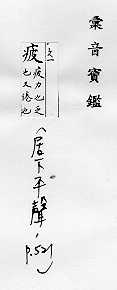 彙音寶鑑
文一
疲
疲力也乏
也又倦也
(居下平聲,
p.521)